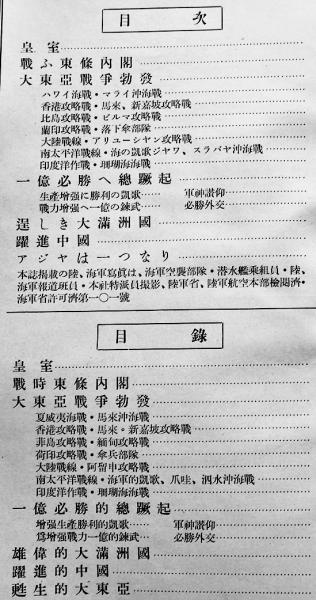 目次
皇室
戰ふ東條內閣
大東亞戰爭勃發
ハワイ海戰・マライ沖海戰
香港攻略戰・馬來、新嘉坡攻略戰
比島攻略戰・ビルマ攻略戰
蘭印攻略戰・落下傘部隊
大陸戰線・アリユーシヤン攻略戰
南太平洋戰線・海の凱歌ジヤワ、スラバヤ沖海戰
印度洋作戰・珊瑚海海戰
一億必勝へ總蹶起
生產增强に勝利の凱歌 軍神讃仰
戰力增强へ一億の鍊武 必勝外交
逞しき大滿洲國
躍進中國
アジヤは一つなり
本誌揭載の陸、海軍寫眞は、海軍空襲部隊・潜水艦乘組員・陸、
海軍報道班員・本社特派員撮影、陸軍省、陸軍航空本部檢閱濟・
海軍省許可濟第一〇一號
目錄
皇室
戰時東條內閣
大東亞戰爭勃發
夏威夷海戰・馬來沖海戰
香港攻略戰・馬來。新嘉坡攻略戰
非島攻略戰・緬甸攻略戰
荷印攻略戰・傘兵部隊
大陸戰線・阿留申攻略戰
南太平洋戰線・海軍的凱歌、爪哇、泗水沖海戰
印度洋作戰・珊瑚海海戰
一億必勝的總蹶起
增强生產勝利的凱歌 軍神讃仰
爲增强戰力一億的鍊武 必勝外交
雄偉的大滿洲國
躍進的中國
甦生的大東亞